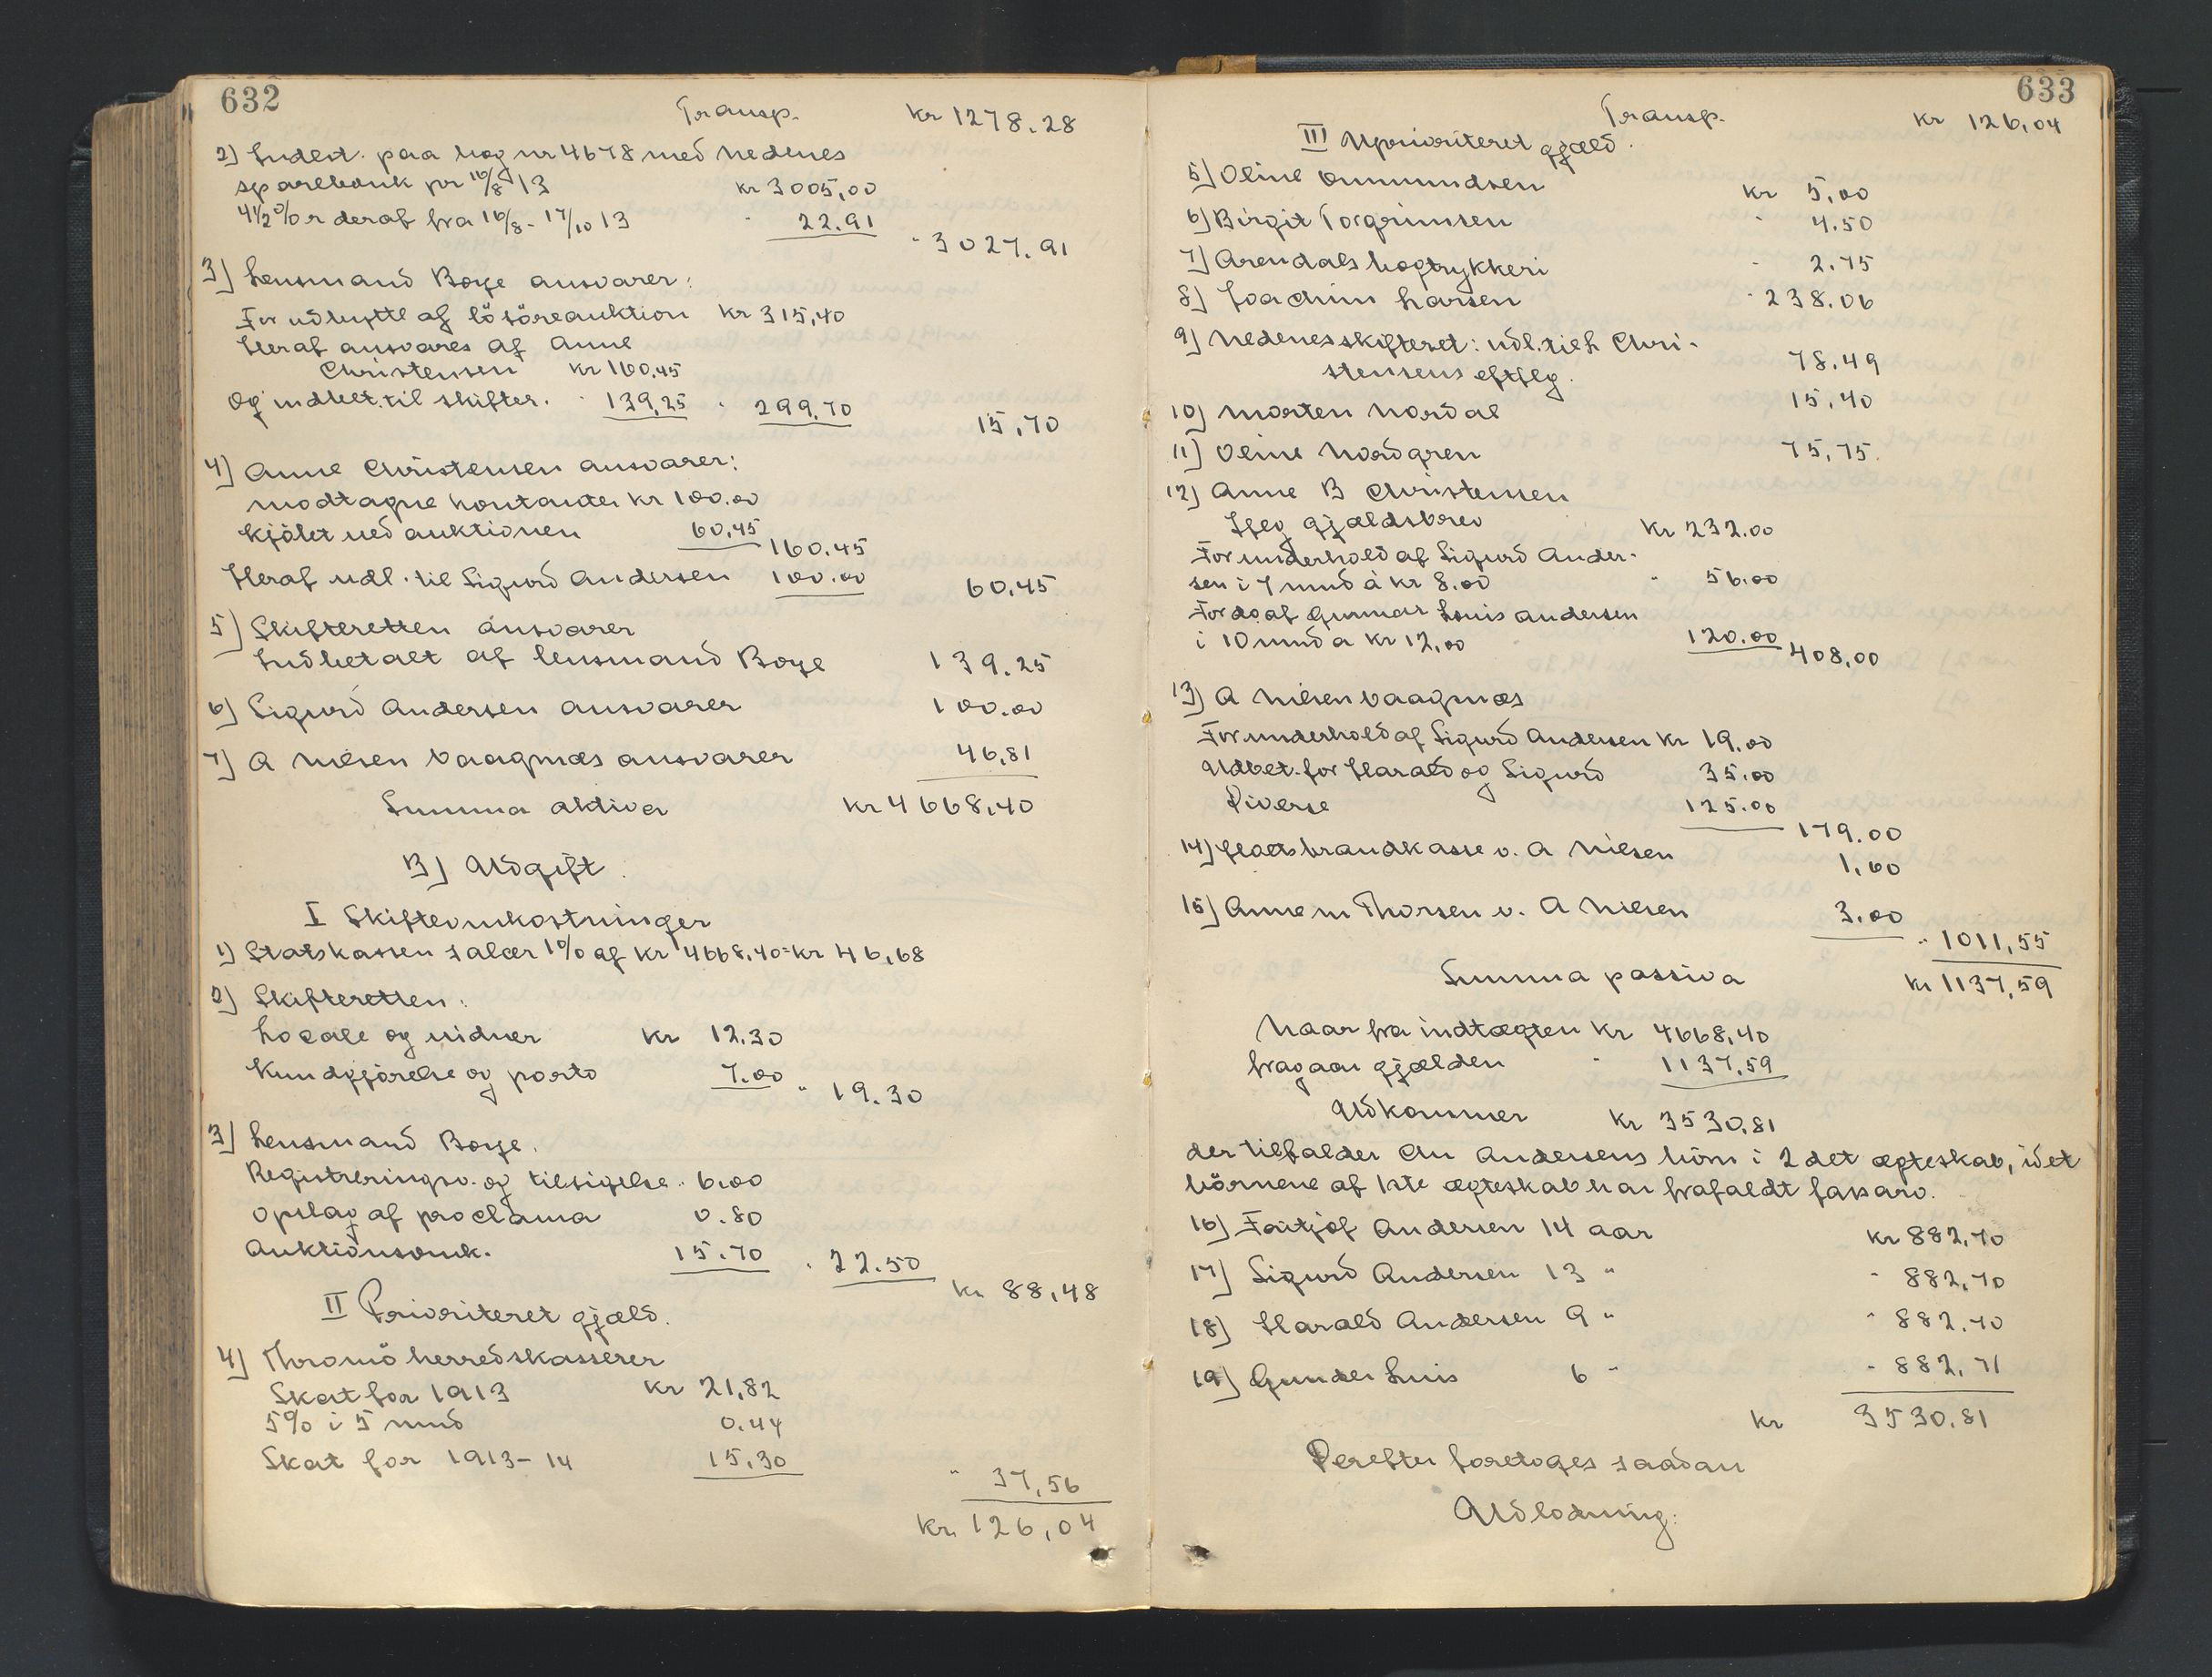 632
Transp. kr 1278.28
2) Indest. paa bog nr 4678 med Nedenes
sparebank pr 16/8 13 kr 3005,00
4 1/2 % r deraf fra 16/8 - 17/10 13 " 22.91
" 3027.91
3) Lensmand Boye ansvarer:
For udbytte af lösöreauktion kr 315,40
Heraf ansvares af Anne
Christensen kr 160,45
Og indbet. til skifter. " 139,25 " 299.70
15,70
4) Anne Christensen ansvarer:
modtagne kontanter kr 100.00
kjöbt ved auktionen 60.45
160.45
Heraf udl. til Sigurd Andersen 100.00 60,45
5) Skifteretten ansvarer
Indbetalt af lensmand Boye 139.25
6) Sigurd Andersen ansvarer 100.00
7) A Nilsen Vaagsnæs ansvarer 46,81
Summa aktiva kr 4668,40
B) Udgift.
I Skifteomkostninger
1) Statskassen salær 1% af kr 4668,40 = kr 46,68
2) Skifteretten:
Locale og vidner kr 12.30
Kundgjörelse og porto 7.00 " 19.30
3) Lensmand Boye.
Registreringsv. og tilsigelse " 6.00
Opslag af proclama 0.80
Auktionsomk. 15.70 " 22.50
kr 88,48
II Prioriteret gjæld.
4) Thromö herredskasserer
Skat for 1913 kr 21,82
5% i 5 mnd 0.44
Skat for 1913-14 15,30
" 37,56
kr. 126,04
633
Transp. kr 126,04
III Uprioriteret gjæld.
5) Oline Ommundsen kr 5,00
6) Birgit Torgrimsen " 4.50
7) Arendals bogtrykkeri " 2.75
8) Joachim Larsen " 238.06
9) Nedenes skifteret: udl. til H Chri-
stensens eftflg. 78.49
10) Morten Nordal 15,40
11) Oline Nordgren 75,75.
12) Anne B Christensen
Iflg gjældsbrev kr 232.00
For underhold af Sigurd Ander-
sen i 7 mnd à kr 8.00 " 56.00
For do af Gunnar Louis Andersen
i 10 mnd a kr 12,00 120.00 408,00
13) A Nilsen Vaagsnæs
For underhold af Sigurd Andersen kr 19.00
Udbet. for Harald og Sigurd 35.00
Diverse 125.00
179.00
14) Statsbrandkasse v. A Nilsen 1,60
15) Anne M Thorsen v. A Nilsen 3.00
" 1011,55
Summa passiva kr 1137,59
Naar fra indtægten kr 4668,40
fragaar gjælden " 1137.59
Udkommer kr 3530.81
der tilfalder Chr Andersens börn i 2det ægteskab, idet
börnene af 1ste ægteskab har frafaldt farsarv.
16) Fritjof Andersen 14 aar kr 882,70
17) Sigurd Andersen 13 " " 882,70
18) Harald Andersen 9 " " 882.70
19) Gunder Luis 6 " " 882,71
kr 3530.81
Derefter foretoges saadan
Udlodning: